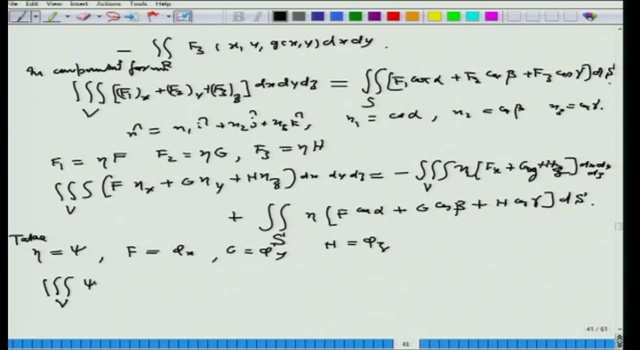 File Edit View Insert Actions Tools Help
− ∬_R F₃ (x, y, g(x,y)) dx dy.
In component form
∭_V [(F₁)_x + (F₂)_y + (F₃)_z] dx dy dz = ∬_S [F₁ cos α + F₂ cos β + F₃ cos γ] dS
n̂ = n₁ î + n₂ ĵ + n₃ k̂, n₁ = cos α, n₂ = cos β n₃ = cos γ.
F₁ = η F F₂ = η G, F₃ = η H
∭_V (F η_x + G η_y + H η_z) dx dy dz = − ∭_V η [F_x + G_y + H_z] dx dy dz
+ ∬_S η [F cos α + G cos β + H cos γ] dS.
Take
η = ψ, F = φ_x, G = φ_y H = φ_z
∭_V ψ
41 / 61
41